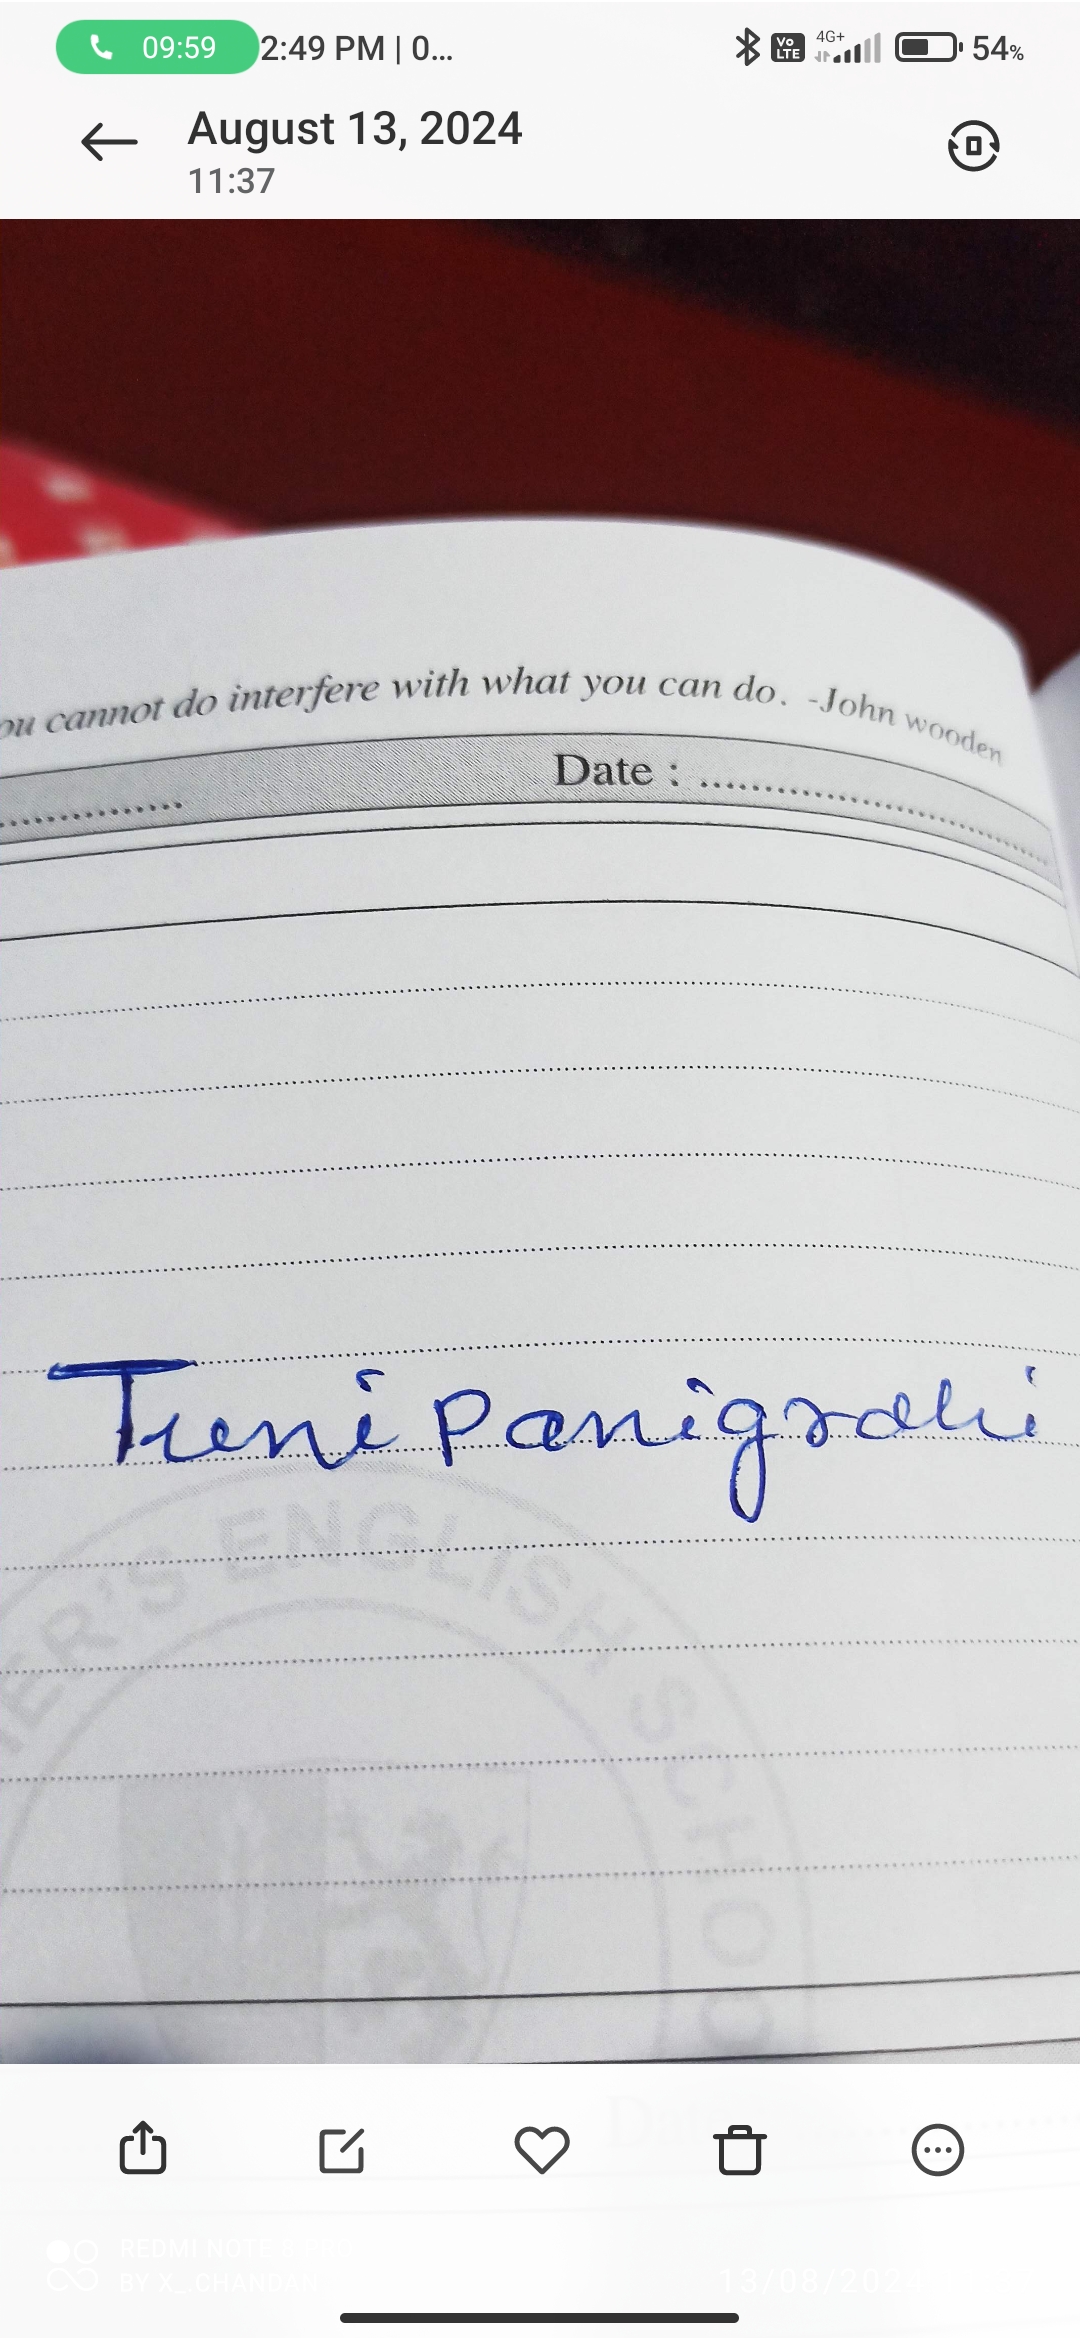 09:59 2:49 PM | 0... 4G+ Vo LTE 54%
August 13, 2024
11:37
ou cannot do interfere with what you can do. -John wooden
Date :
Tuni panigrahi
ER'S ENGLISH SCHOO
REDMI NOTE
BY X_.CHANDAN
13/08/202